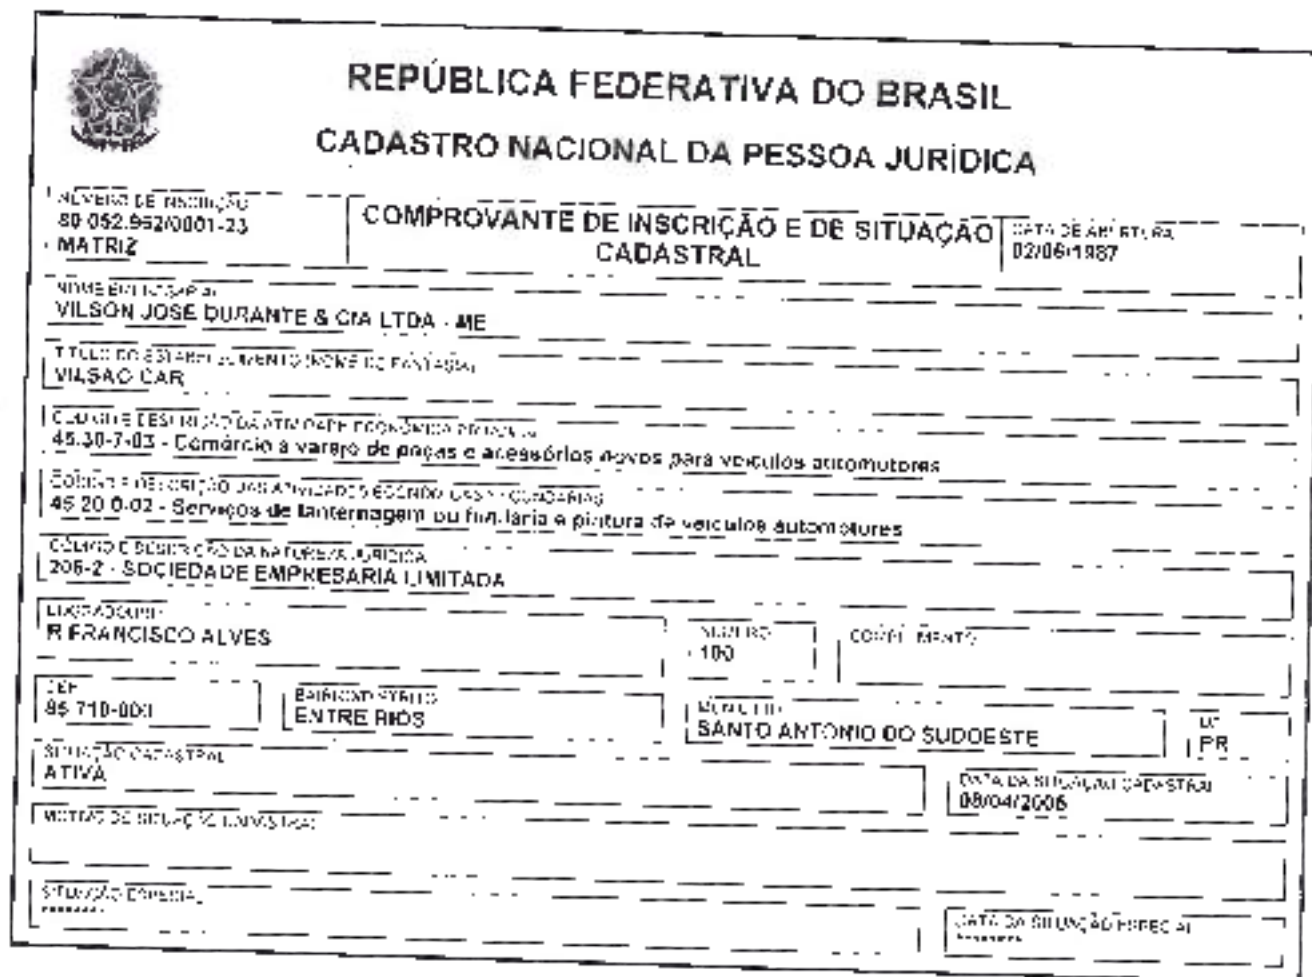 REPÚBLICA FEDERATIVA DO BRASIL
CADASTRO NACIONAL DA PESSOA JURÍDICA
NÚMERO DE INSCRIÇÃO
80.052.962/0001-23
MATRIZ
COMPROVANTE DE INSCRIÇÃO E DE SITUAÇÃO
CADASTRAL
DATA DE ABERTURA
02/06/1987
NOME EMPRESARIAL
VILSON JOSE DURANTE & CIA LTDA - ME
TÍTULO DO ESTABELECIMENTO (NOME DE FANTASIA)
VILSAO CAR
CÓDIGO E DESCRIÇÃO DA ATIVIDADE ECONÔMICA PRINCIPAL
45.30-7-03 - Comércio a varejo de peças e acessórios novos para veículos automotores
CÓDIGO E DESCRIÇÃO DAS ATIVIDADES ECONÔMICAS SECUNDÁRIAS
45.20-0-02 - Serviços de lanternagem ou funilaria e pintura de veículos automotores
CÓDIGO E DESCRIÇÃO DA NATUREZA JURÍDICA
206-2 - SOCIEDADE EMPRESARIA LIMITADA
LOGRADOURO
R FRANCISCO ALVES
NÚMERO
100
COMPLEMENTO
CEP
85.710-000
BAIRRO/DISTRITO
ENTRE RIOS
MUNICÍPIO
SANTO ANTONIO DO SUDOESTE
UF
PR
SITUAÇÃO CADASTRAL
ATIVA
DATA DA SITUAÇÃO CADASTRAL
08/04/2006
MOTIVO DE SITUAÇÃO CADASTRAL
SITUAÇÃO ESPECIAL
********
DATA DA SITUAÇÃO ESPECIAL
********